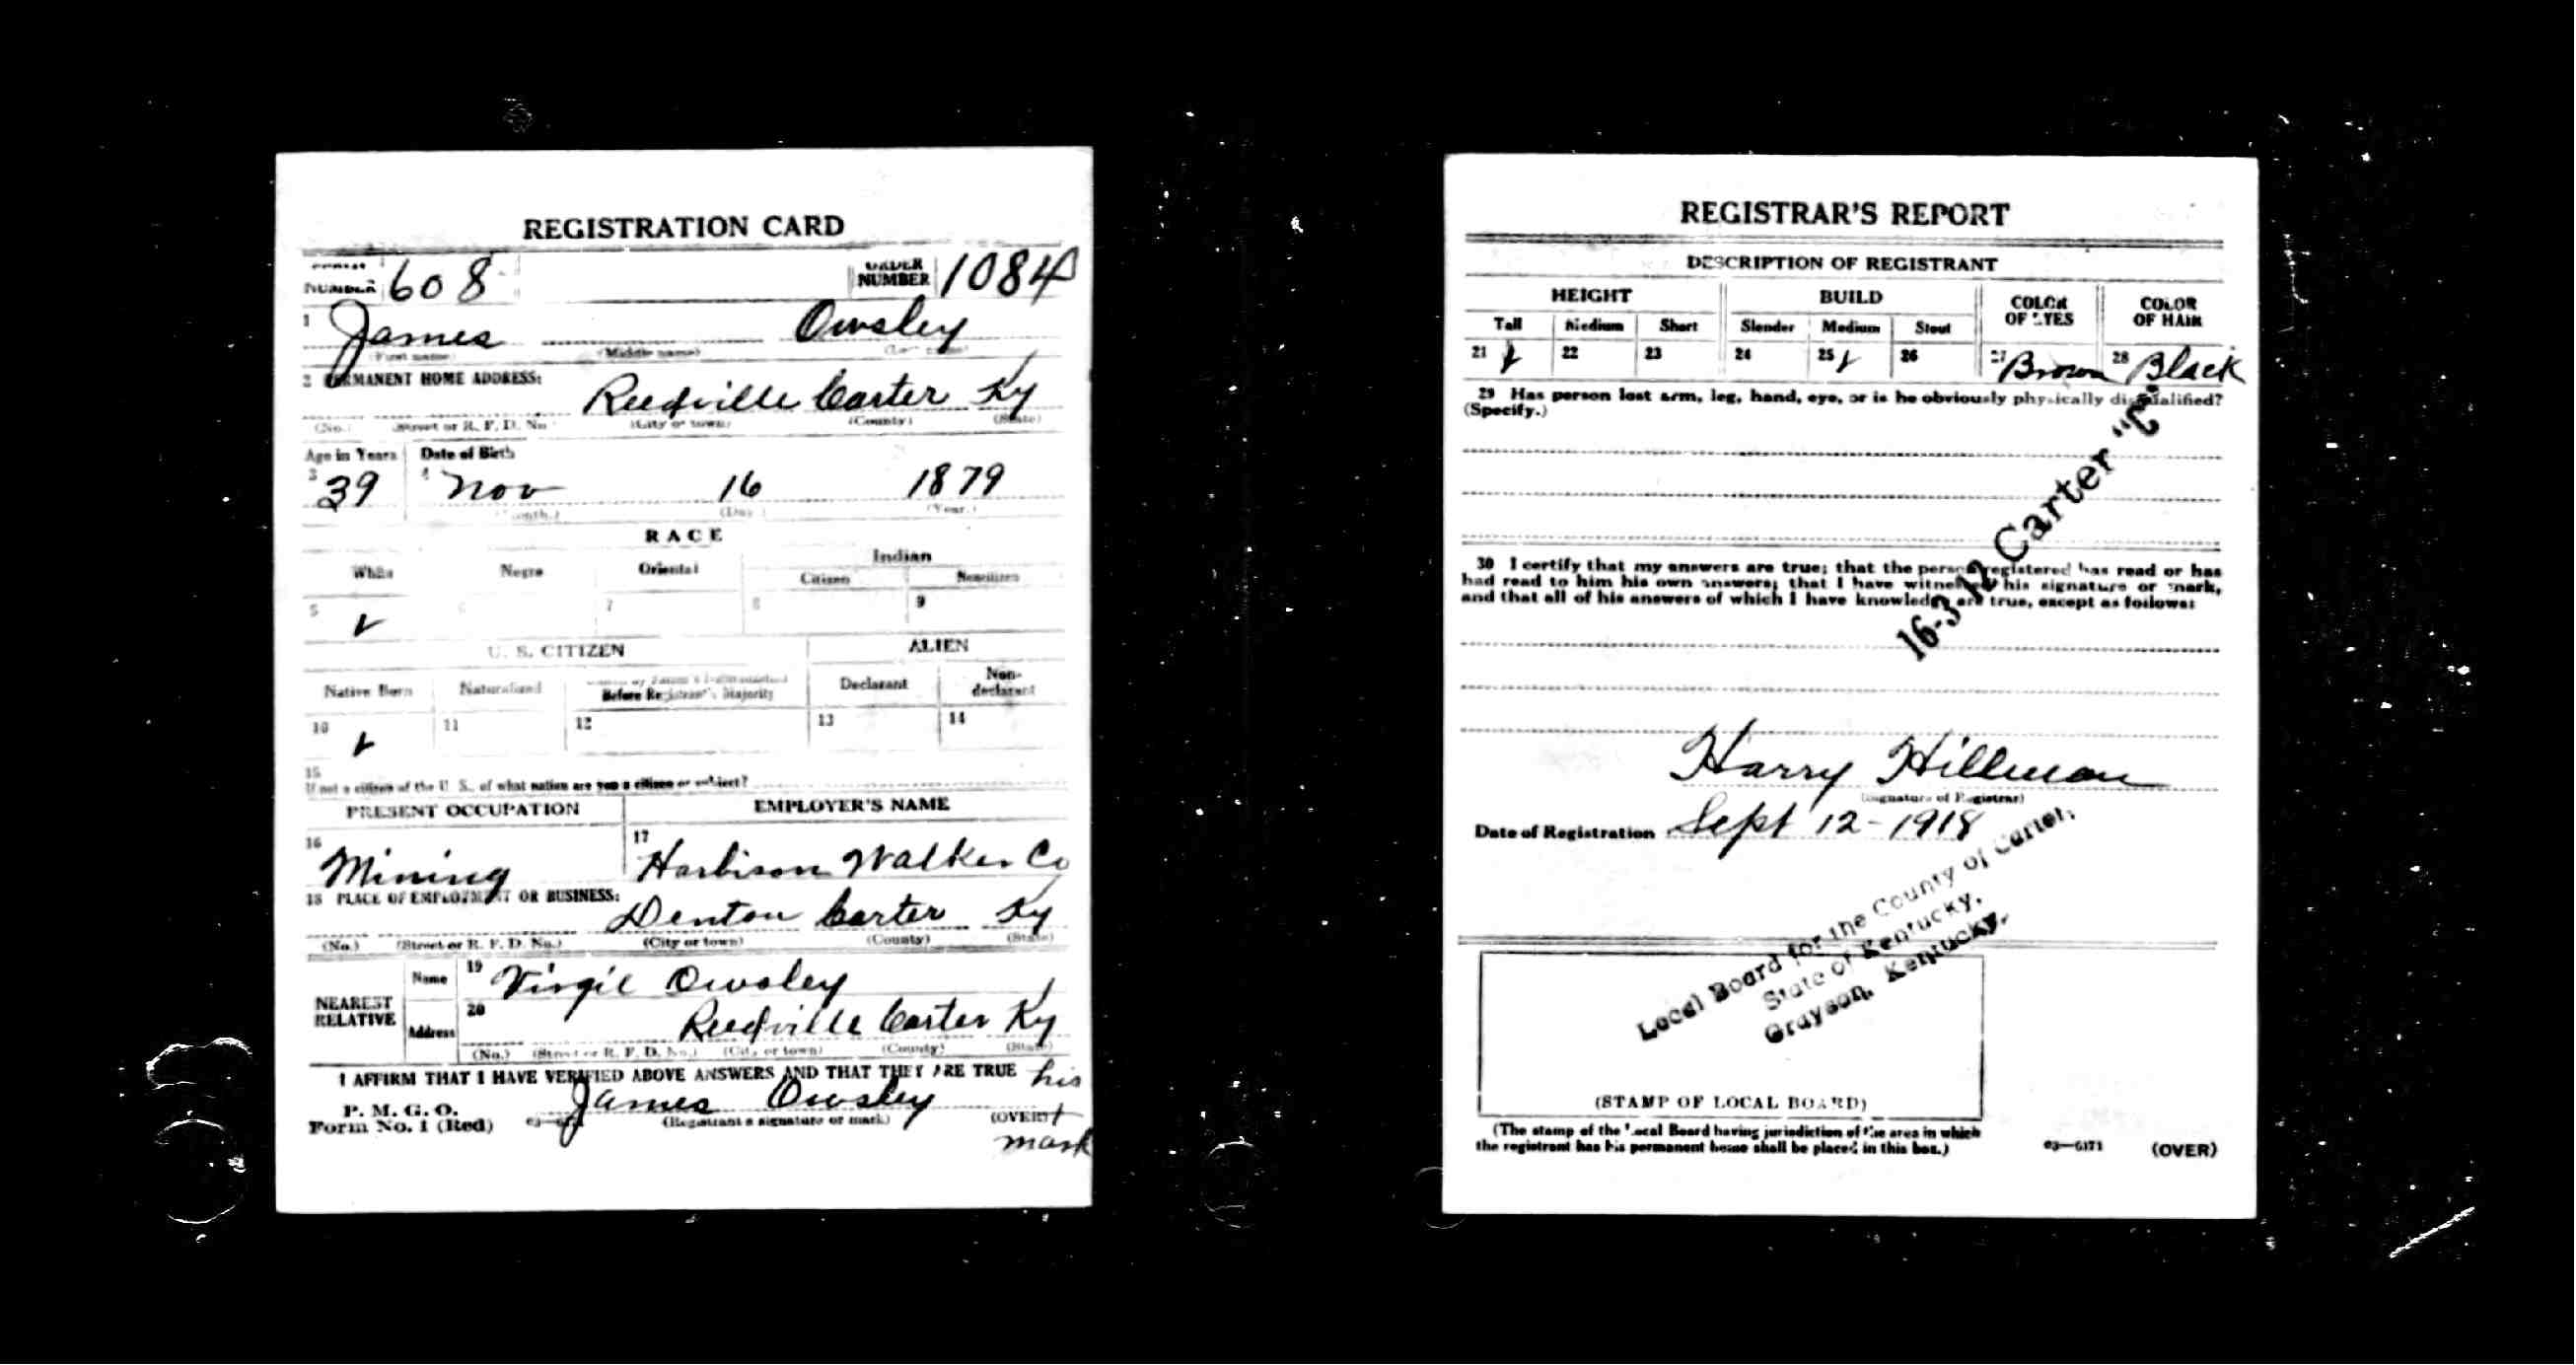 REGISTRATION CARD
NUMBER 608 ORDER NUMBER 1084
1 James Owsley
(First name) (Middle name) (Last name)
2 PERMANENT HOME ADDRESS:
Reedville Carter Ky
(No.) (Street or R. F. D. No.) (City or town) (County) (State)
Age in Years Date of Birth
3 39 4 Nov 16 1879
(Month.) (Day.) (Year.)
RACE
White Negro Oriental Indian
Citizen Noncitizen
5 ✓ 6 7 8 9
U. S. CITIZEN ALIEN
Native Born Naturalized Before Registrant's Majority Declarant Non-declarant
10 ✓ 11 12 13 14
15
If not a citizen of the U. S., of what nation are you a citizen or subject?
PRESENT OCCUPATION EMPLOYER'S NAME
16 Mining 17 Harbison Walker Co
18 PLACE OF EMPLOYMENT OR BUSINESS:
Denton Carter Ky
(No.) (Street or R. F. D. No.) (City or town) (County) (State)
NEAREST RELATIVE
Name 19 Virgil Owsley
Address 20 Reedville Carter Ky
(No.) (Street or R. F. D. No.) (City or town) (County) (State)
I AFFIRM THAT I HAVE VERIFIED ABOVE ANSWERS AND THAT THEY ARE TRUE his
P. M. G. O.
Form No. 1 (Red) James Owsley
(Registrant's signature or mark) (OVER) +
mark
REGISTRAR'S REPORT
DESCRIPTION OF REGISTRANT
HEIGHT BUILD COLOR OF EYES COLOR OF HAIR
Tall Medium Short Slender Medium Stout
21 ✓ 22 23 24 25 ✓ 26 27 Brown 28 Black
29 Has person lost arm, leg, hand, eye, or is he obviously physically disqualified?
(Specify.)
16-3-12 Carter "C"
30 I certify that my answers are true; that the person registered has read or has
had read to him his own answers; that I have witnessed his signature or mark,
and that all of his answers of which I have knowledge are true, except as follows:
Harry Hillman
(Signature of Registrar)
Date of Registration Sept 12-1918
Local Board for the County of Carter,
State of Kentucky,
Grayson, Kentucky.
(STAMP OF LOCAL BOARD)
(The stamp of the Local Board having jurisdiction of the area in which
the registrant has his permanent home shall be placed in this box.)
03—6171 (OVER)